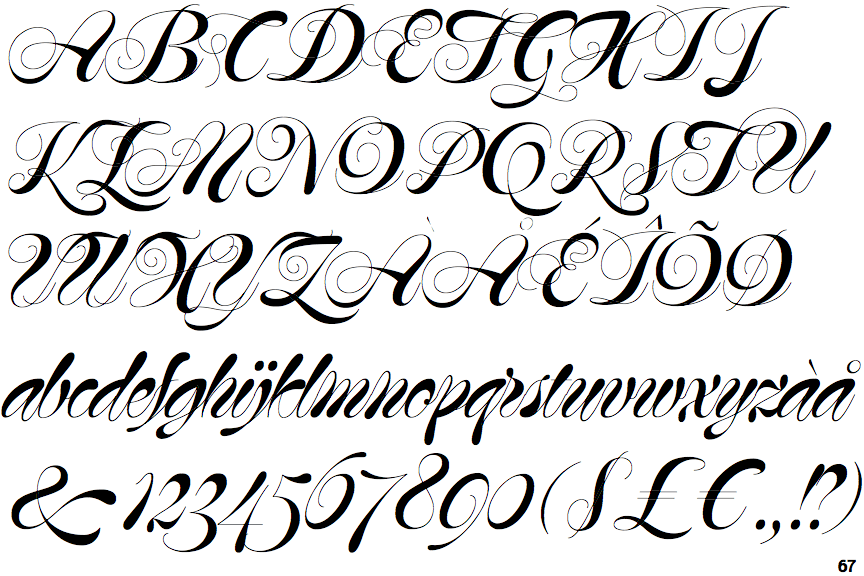 ABCDEFGHIJ
KLMNOPQRSTU
VWXYZÀÅÉÎÕØ
abcdefghijklmnopqrstuvwxyzàå
&1234567890($£€.,!?)
67